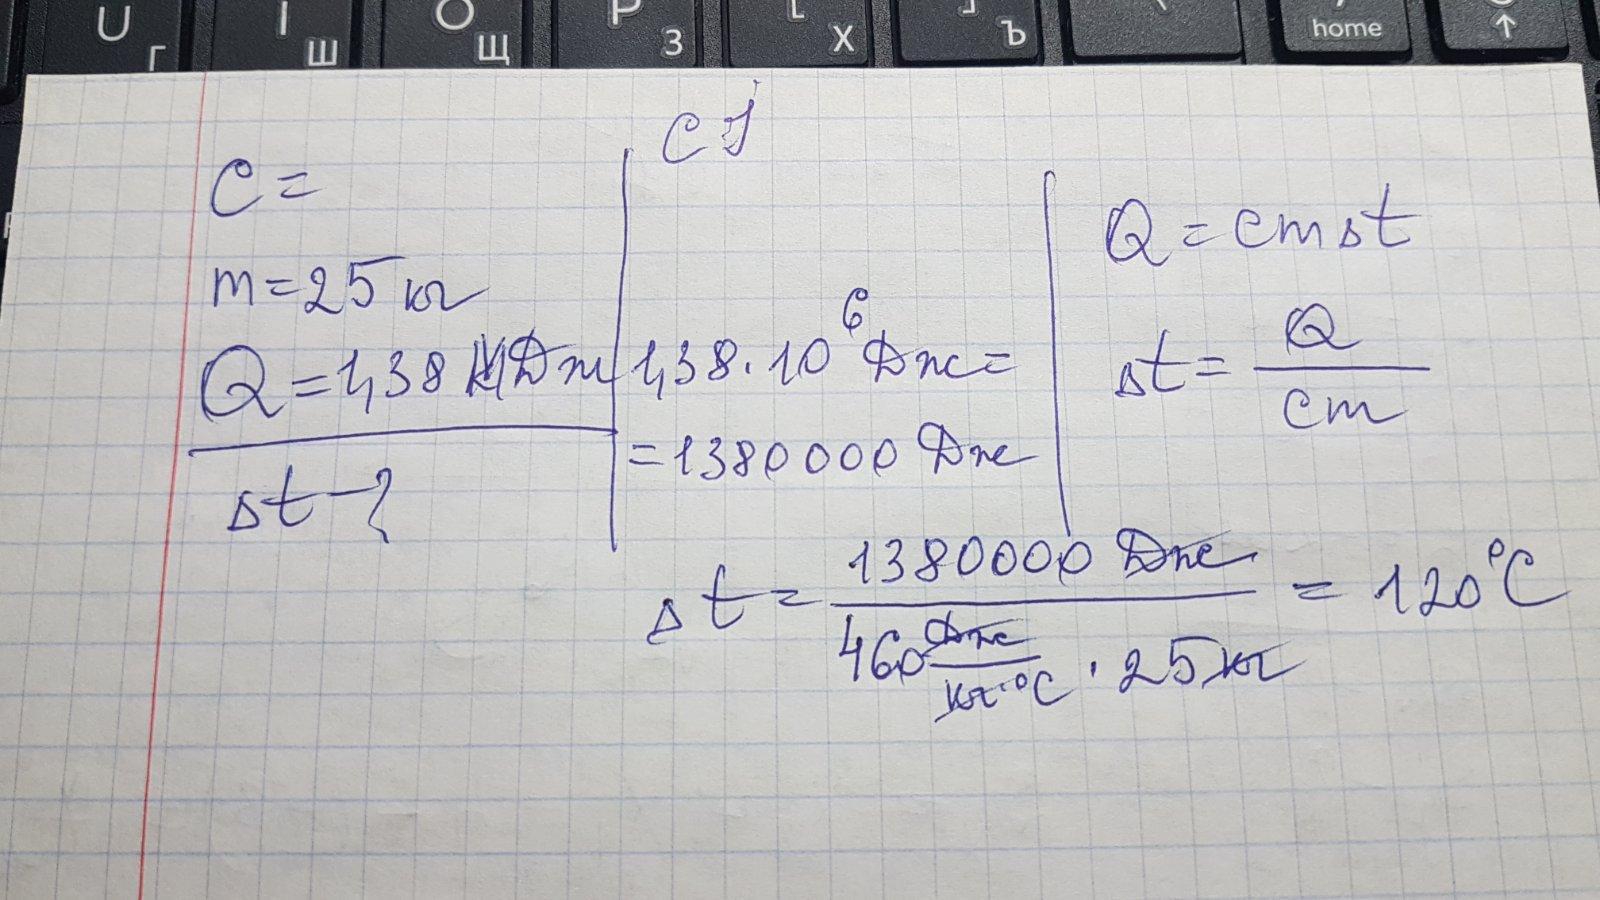 U Г
I Ш
O Щ
P З
[ Х
] Ъ
home
↑
C =
m = 25 кг
Q = 1,38 МДж
Δt - ?
СИ
1,38 · 10⁶ Дж =
= 1380000 Дж
Q = cmΔt
Δt = Q / cm
Δt = 1380000 Дж / 460 Дж/кг·°C · 25 кг = 120°C